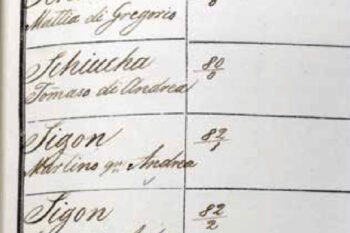 Mattia di Gregorio
8
Schiucha
80
0
Tomaso di Andrea
Sigon
82
1
Martino qm Andrea
Sigon
82
2